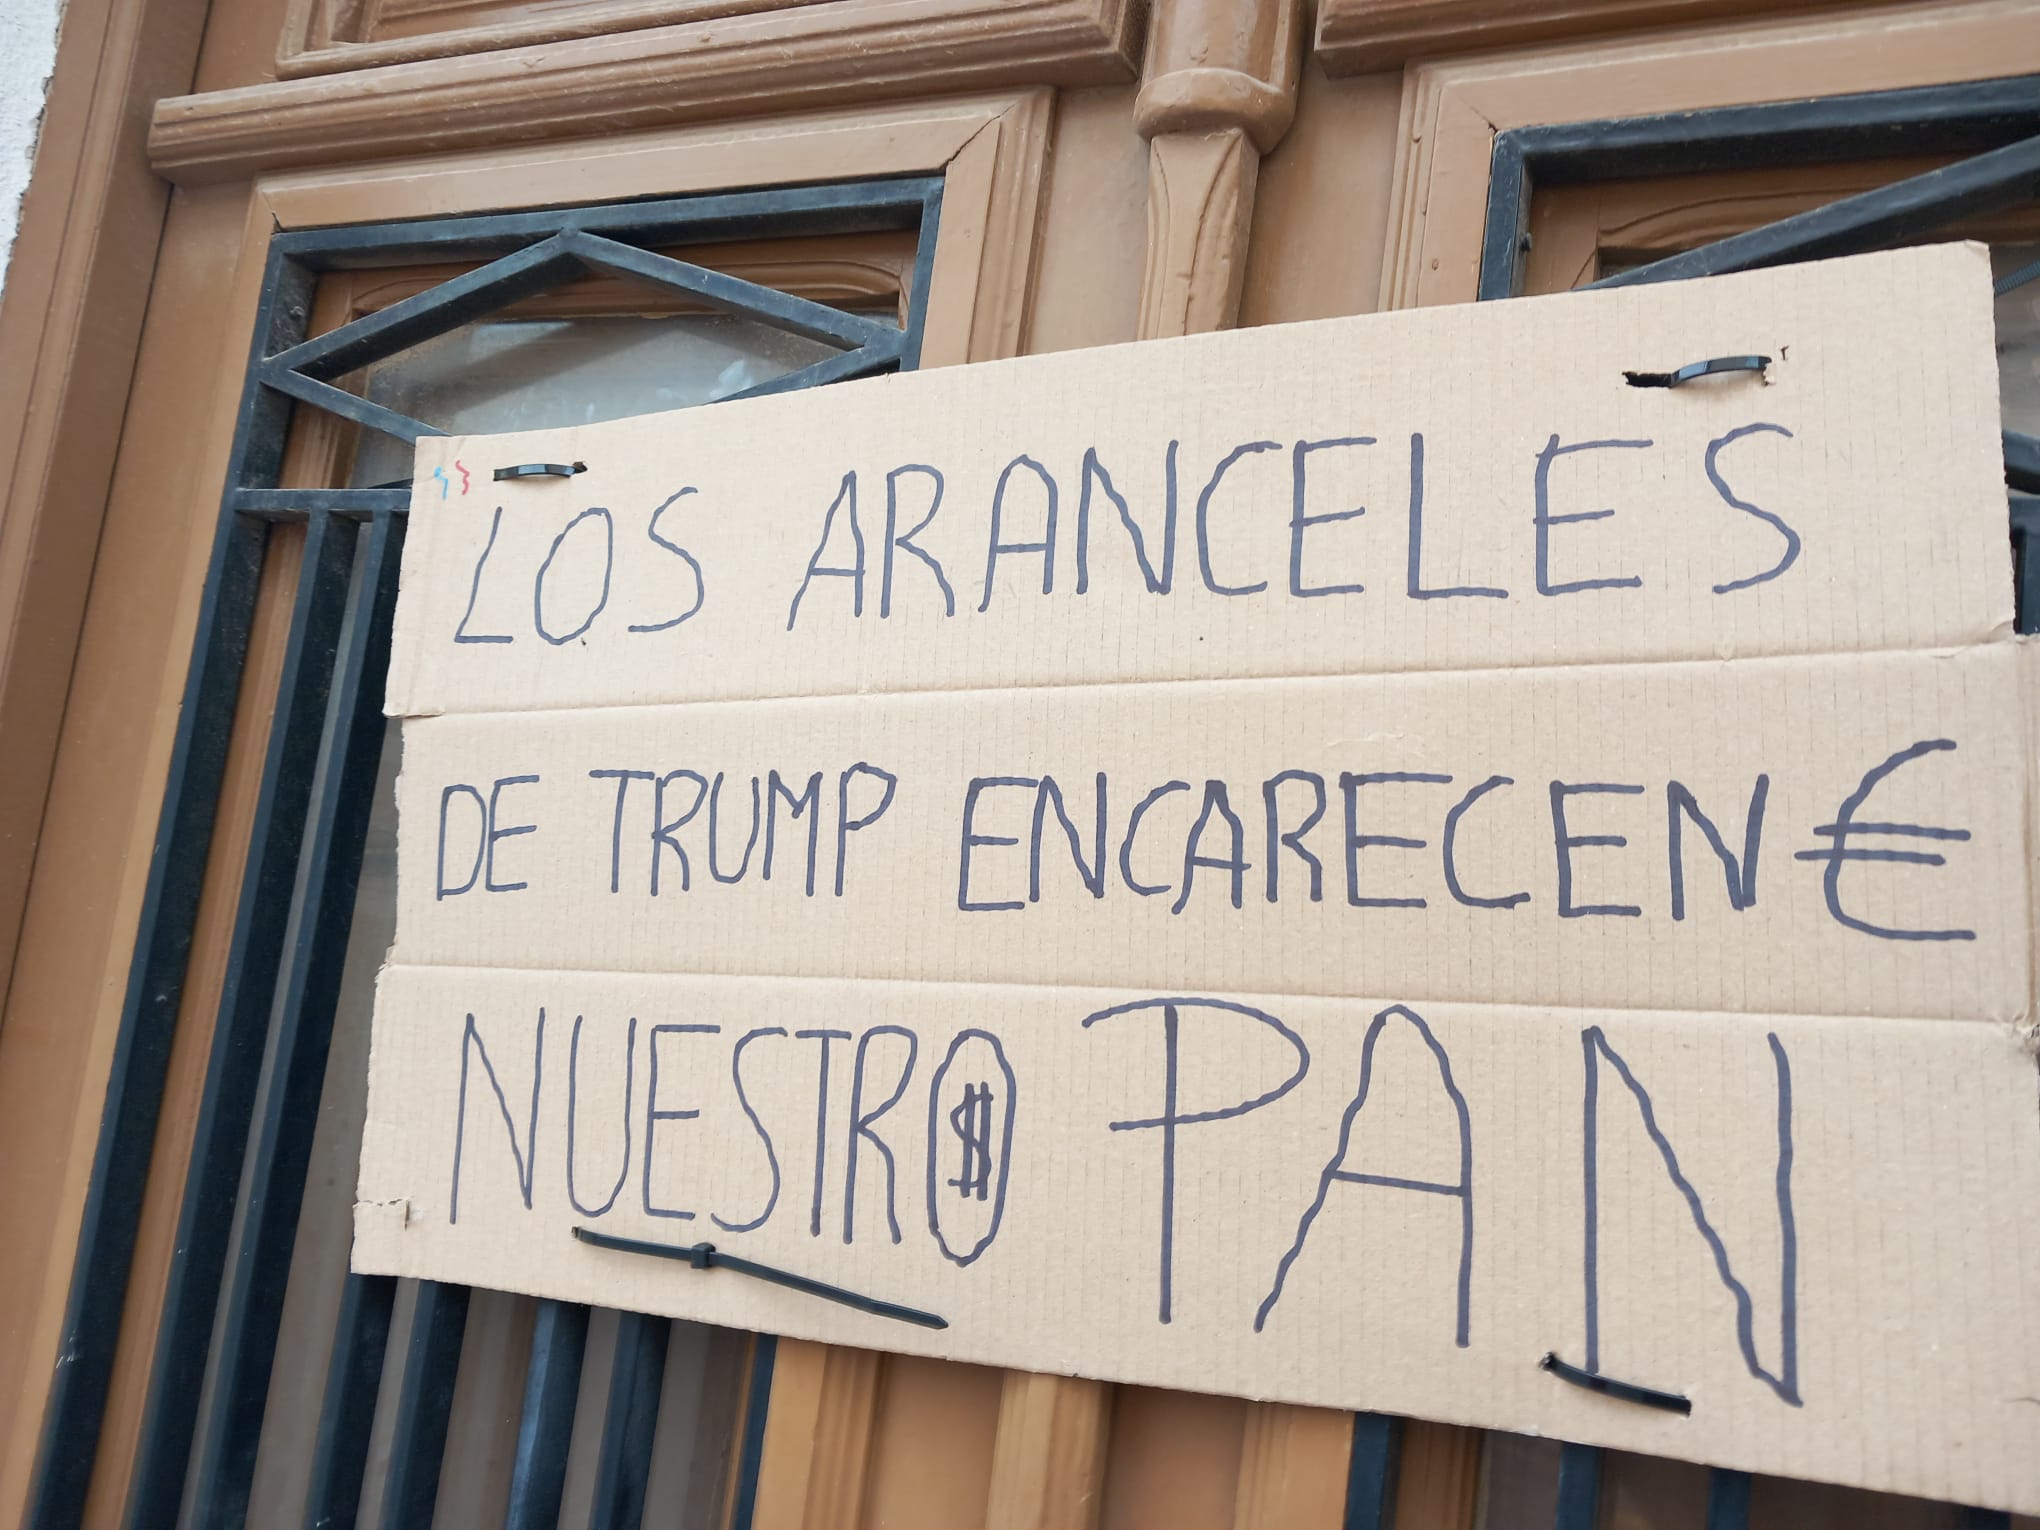 LOS ARANCELES
DE TRUMP ENCARECEN €
NUESTRO PAN